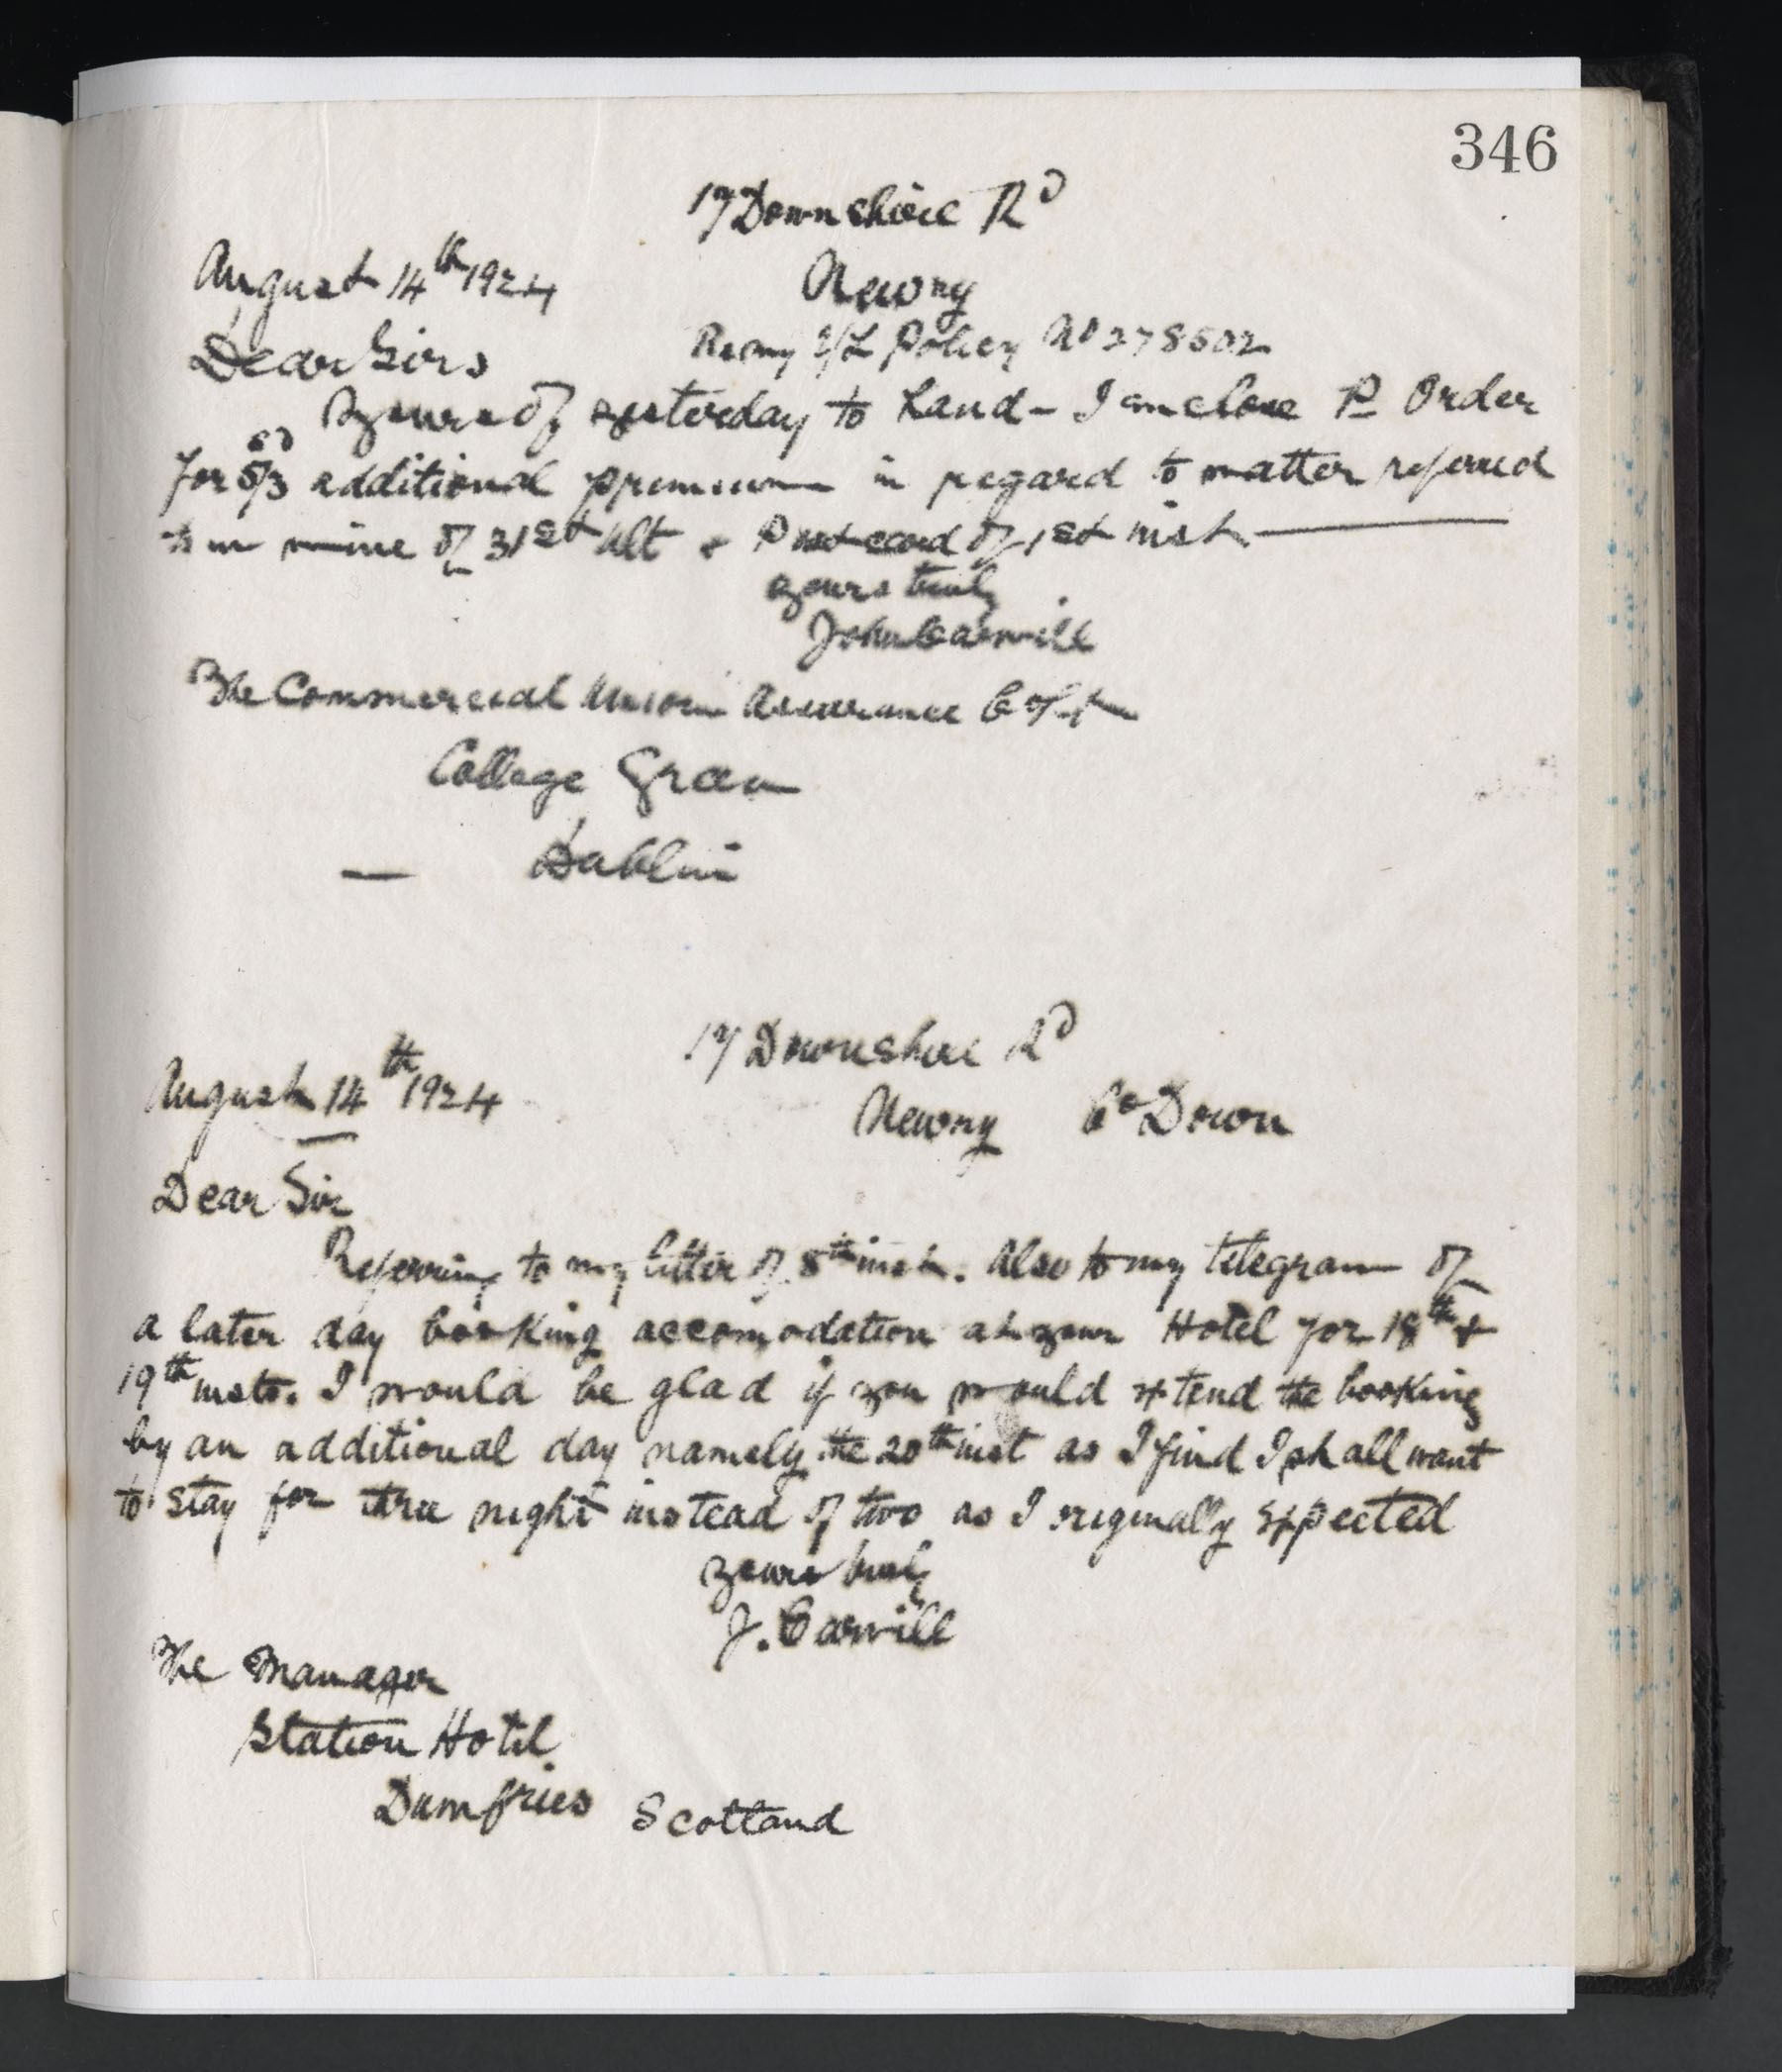 346
17 Downshire Rd
August 14th 1924
Newry
Re my E/L Policy No 278502
Dear Sirs
Yours of yesterday to hand - I enclose P Order
for 5/3 additional premium in regard to matter referred
to in mine of 31st ult & Postcard of 1st inst.
Yours truly
John Carvill
The Commercial Union Assurance Co Ltd
College Green
Dublin
17 Downshire Rd
August 14th 1924
Newry Co Down
Dear Sir
Referring to my letter of 8th inst. Also to my telegram of
a later day booking accomodation at your Hotel for 18th &
19th insts. I would be glad if you would extend the booking
by an additional day namely the 20th inst as I find I shall want
to stay for three night instead of two as I originally expected
yours truly
J. Carvill
The Manager
Station Hotel
Dumfries Scotland